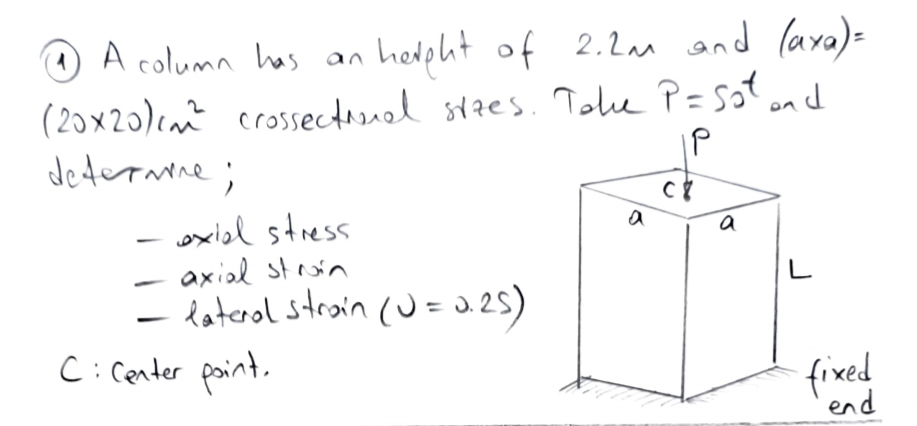 ① A column has an heıght of 2.2m and (axa)=
(20x20)cm² crossectional sizes. Take P=50t and
determine;
P
C
a
a
- axial stress
- axial strain
L
- lateral strain (υ = 0.25)
C: Center point.
fixed
end